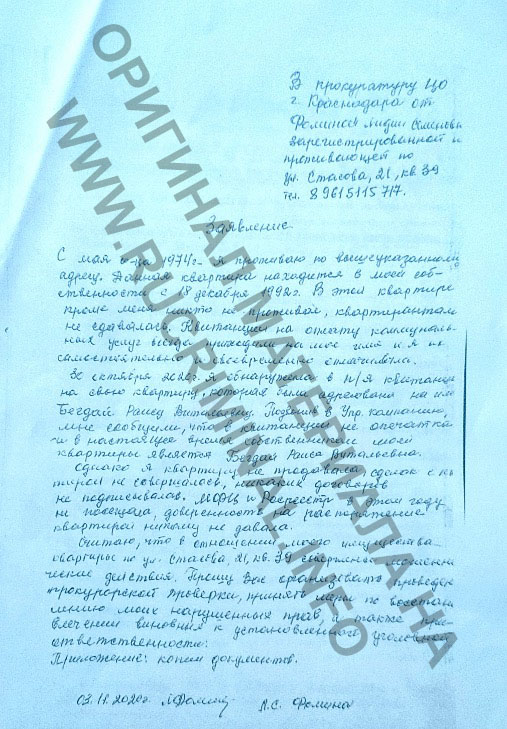 В прокуратуру ЦО
г. Краснодара от
Фоминой Лидии Семеновны
зарегистрированной и
проживающей по
ул. Стасова, 21, кв 39
тел. 89615115717.
Заявление
С мая 1974г. я проживаю по вышеуказанному
адресу. Данная квартира находится в моей соб-
ственности с 18 декабря 1992г. В этой квартире
кроме меня никто не проживал, квартирантам
не сдавалась. Квитанции на оплату коммуналь-
ных услуг всегда приходили на мое имя и я их
самостоятельно и своевременно оплачивала.
30 октября 2020г. я обнаружила в п/я квитанцию
на свою квартиру, которая была адресована на имя
Бегдай Раисы Витальевны. Позвонив в Упр. компанию,
мне сообщили, что в квитанции не опечатка
и в настоящее время собственником моей
квартиры является Бегдай Раиса Витальевна.
Однако я квартиру не продавала, сделок с кв
тирой не совершалось, никаких договоров
не подписывала. МФЦ и Росреестр в этом году
не посещала, доверенность на распоряжение
квартирой никому не давала.
Считаю, что в отношении моего имущества
квартиры по ул. Стасова, 21, кв. 39 совершены мошенни-
ческие действия. Прошу Вас организовать проведен
прокурорской проверки, принять меры по восстанов
лению моих нарушенных прав, а также при-
влечении виновных к установленной уголовной
ответственности.
Приложение: копии документов.
03.11.2020г. Л.С. Фомина
ОРИГИНАЛ МАТЕРИАЛА НА
WWW.RUCRIMINAL.INFO